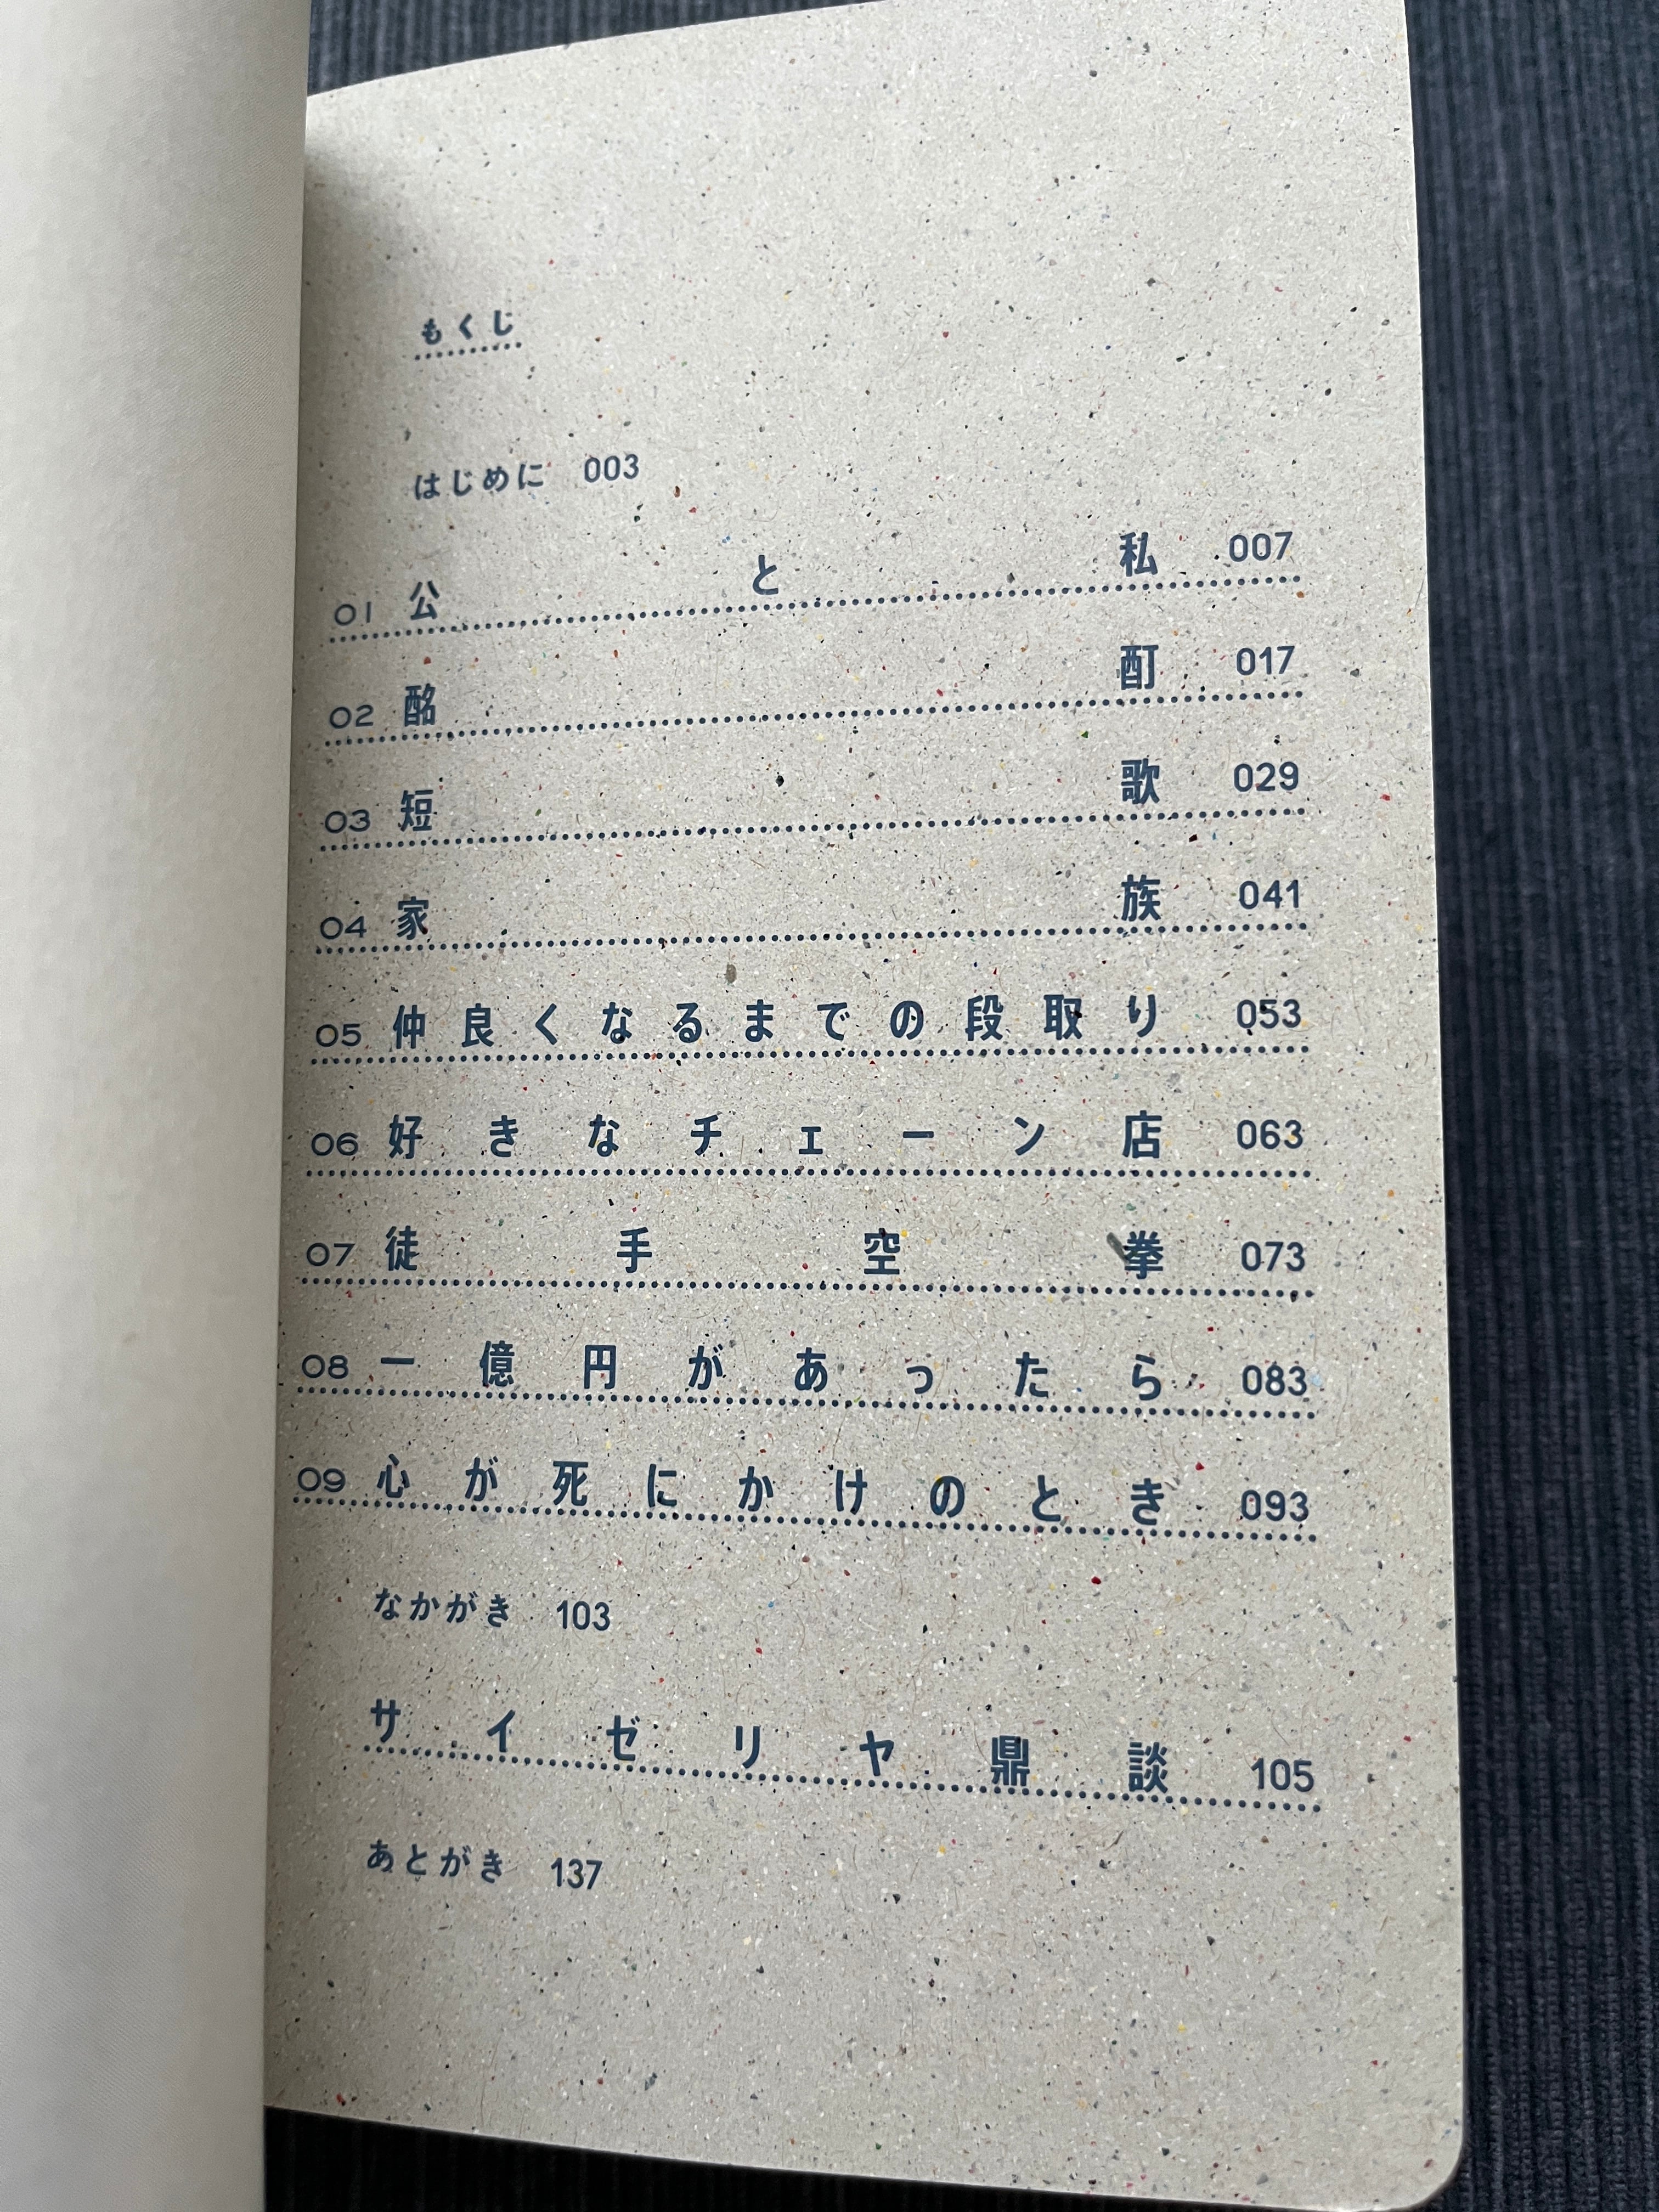 もくじ
はじめに 003
01 公と私 007
02 酩酊 017
03 短歌 029
04 家族 041
05 仲良くなるまでの段取り 053
06 好きなチェーン店 063
07 徒手空拳 073
08 一億円があったら 083
09 心が死にかけのとき 093
なかがき 103
サイゼリヤ鼎談 105
あとがき 137